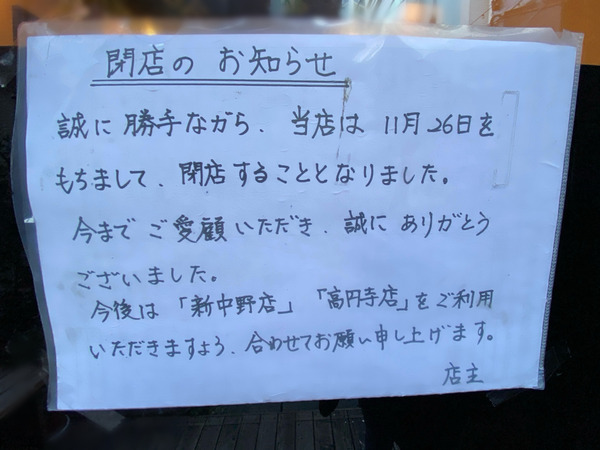 閉店の お知らせ
誠に 勝手ながら、当店は 11月 26日を
もちまして、閉店することとなりました。
今まで ご愛顧いただき、誠に ありがとう
ございました。
今後は 「新中野店」 「高円寺店」をご利用
いただきますよう、合わせてお願い申し上げます。
店主